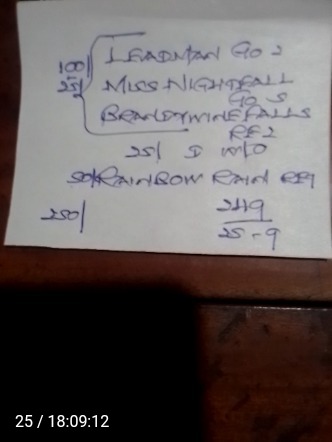 LEADMAN GO 2
100/
25/ MISS NIGHTFALL
GO S
BRANDYWINEFALLS
RE2
25/ D W/O
50/ RAINBOW RAIN RE9
250/ 249
25-9
25 / 18:09:12